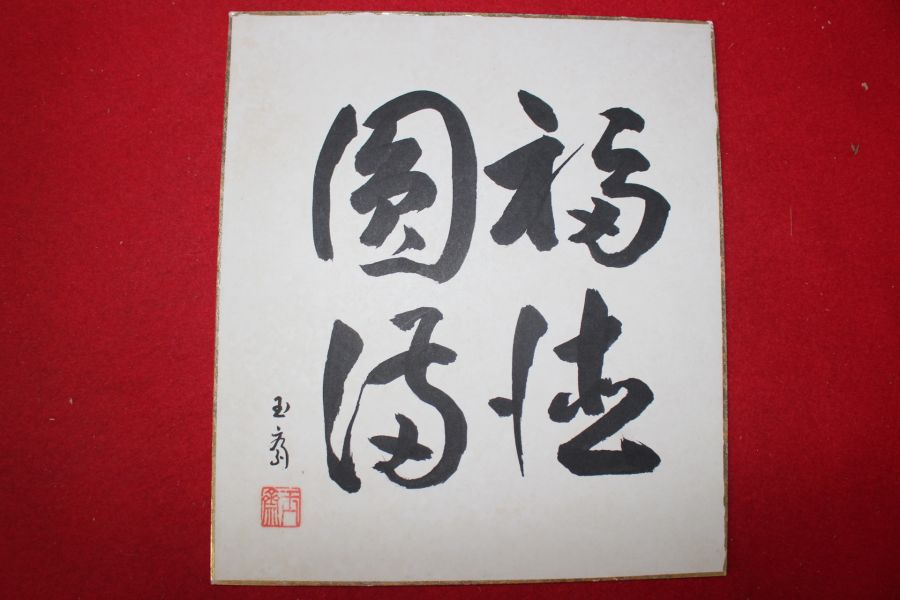 福徳
圓満
玉斎